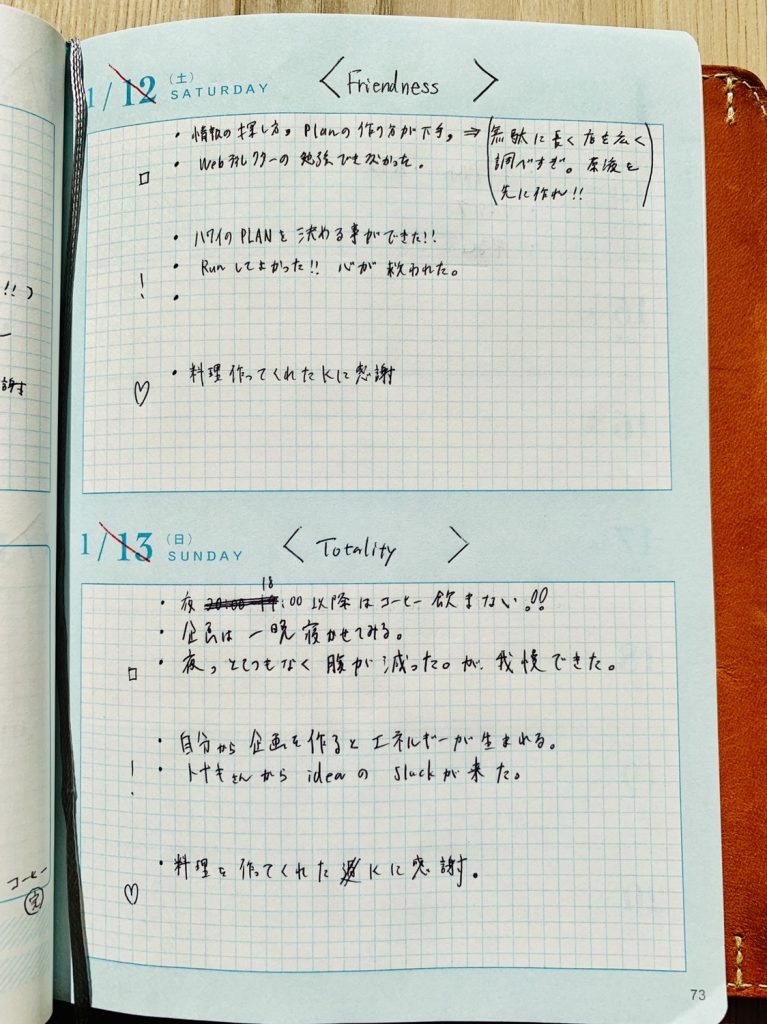 !!)
謝
コーヒー
完
1/12 (土) SATURDAY 〈 Friendness 〉
・情報の探し方、Planの作り方が下手。⇒ (無駄に長く広く
調べすぎ。原液を
先に作れ!!)
・Webディレクターの勉強できなかった。
□
・ハワイのPLANを決める事ができた!!
・Runしてよかった!! 心が救われた。
・
!
・料理作ってくれたKに感謝
♡
1/13 (日) SUNDAY 〈 Totality 〉
・夜 18:00以降はコーヒー飲まない!!
・企画は一晩寝かせてみる。
・夜、とてつもなく腹が減った。が、我慢できた。
□
・自分から企画を作るとエネルギーが生まれる。
・トナキさんから ideaの sluckが来た。
!
・料理を作ってくれたKに感謝。
♡
73